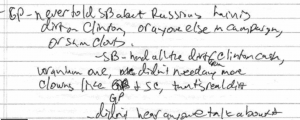 GP - never told SB about Russians having
dirt on Clinton, or anyone else in campaign,
or Sam Clovis.
- SB - had all the dirt, Clinton Cash,
uranium one, didn't need any more
clowns like GP & SC, that's real dirt
GP
- didn't hear anyone talk about